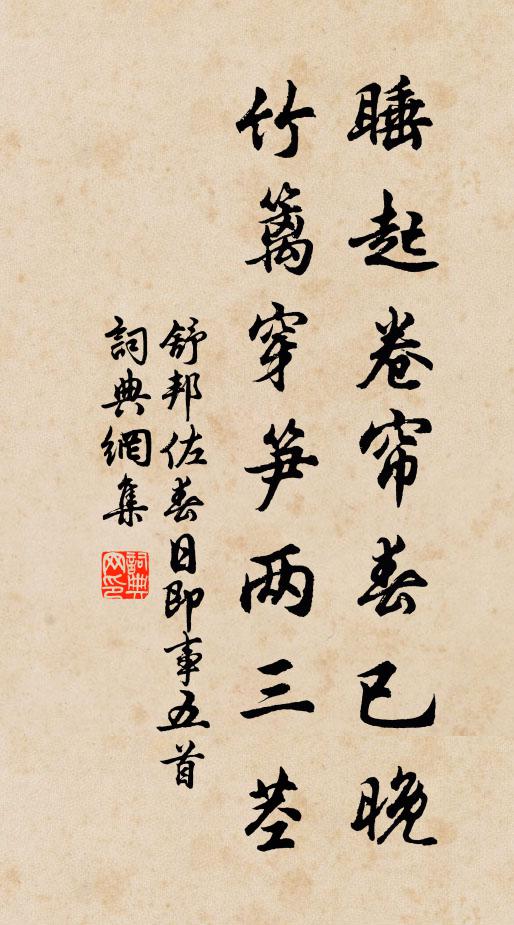 睡起卷帘春已晚
竹篱穿笋两三茎
舒邦佐春日即事五首
詞典網集
詞典網印